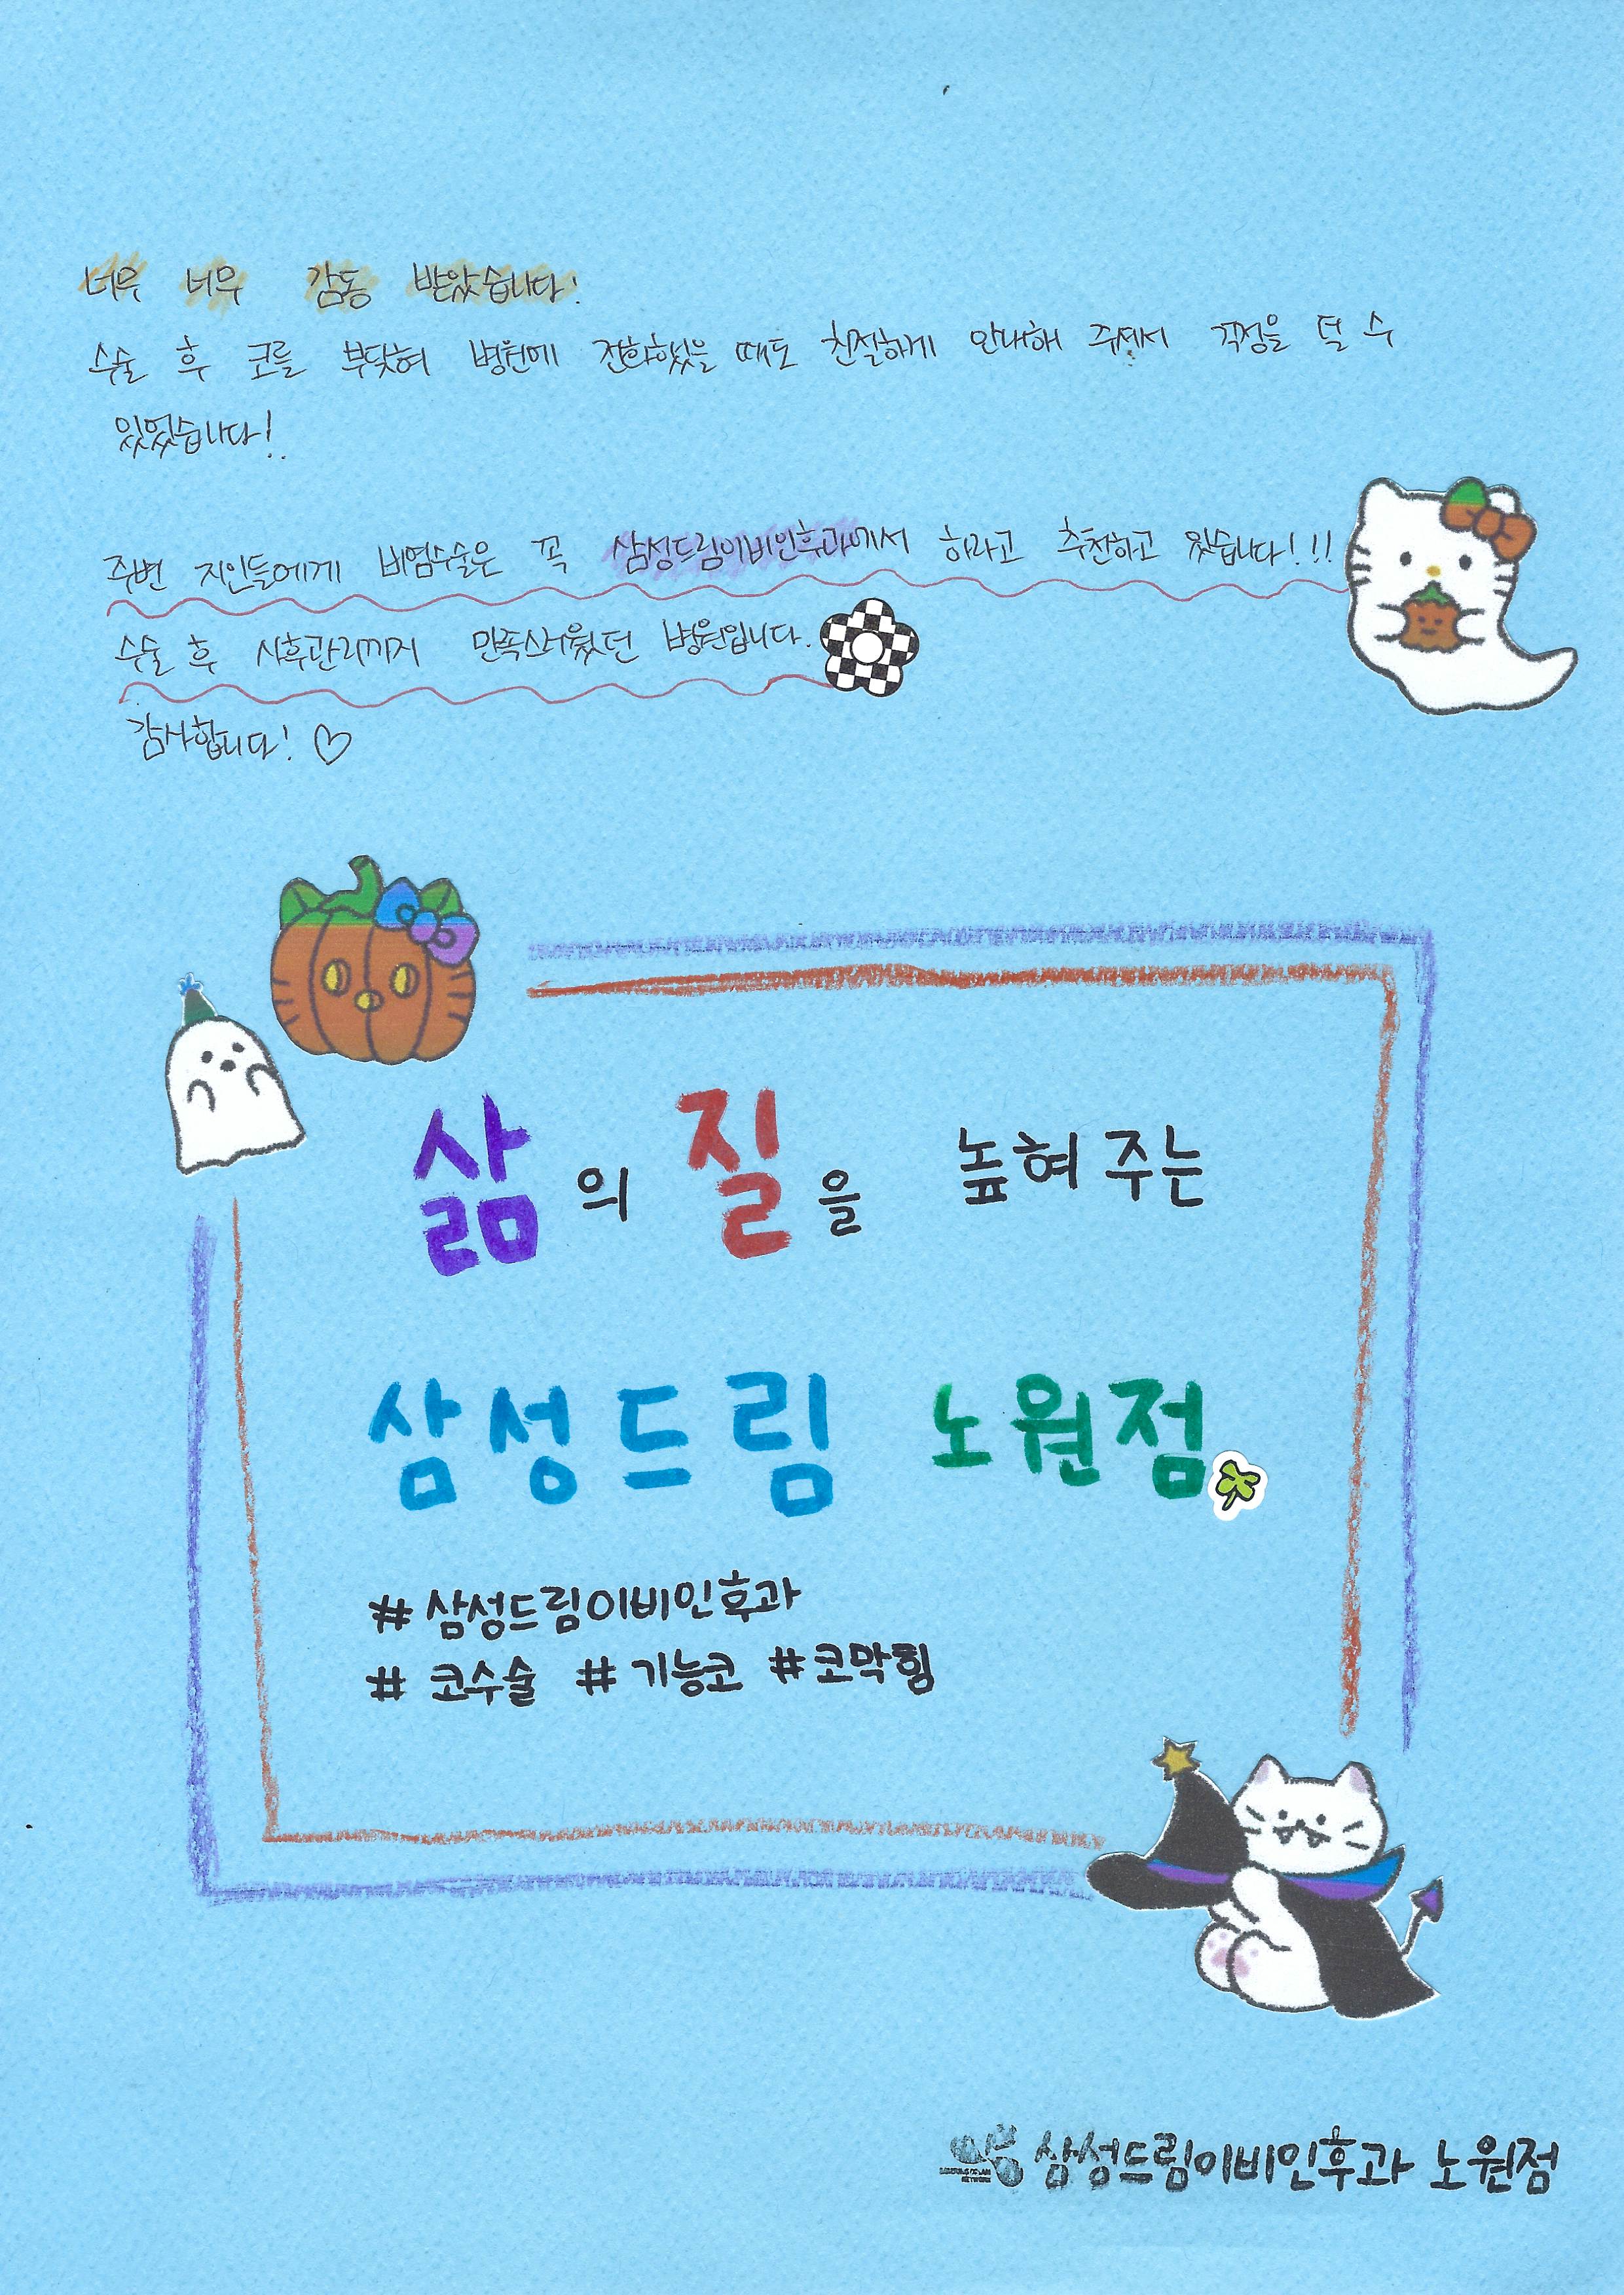 너무 너무 감동 받았습니다!
수술 후 코를 부딪혀 병원에 전화했을 때도 친절하게 안내해 주셔서 걱정을 덜 수
있었습니다!
주변 지인들에게 비염수술은 꼭 삼성드림이비인후과에서 하라고 추천하고 있습니다!!!
수술 후 사후관리까지 만족스러웠던 병원입니다.
감사합니다! ♡
삶의 질을 높혀 주는
삼성드림 노원점
# 삼성드림이비인후과
# 코수술 # 기능코 #코막힘
삼성드림이비인후과 노원점